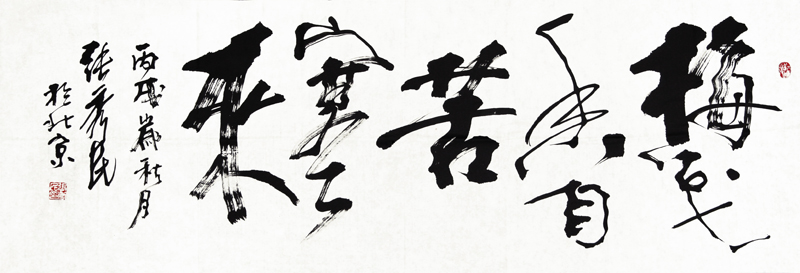 梅花
香自
苦
寒
来
丙戌歲秋月
张秀民
於北京